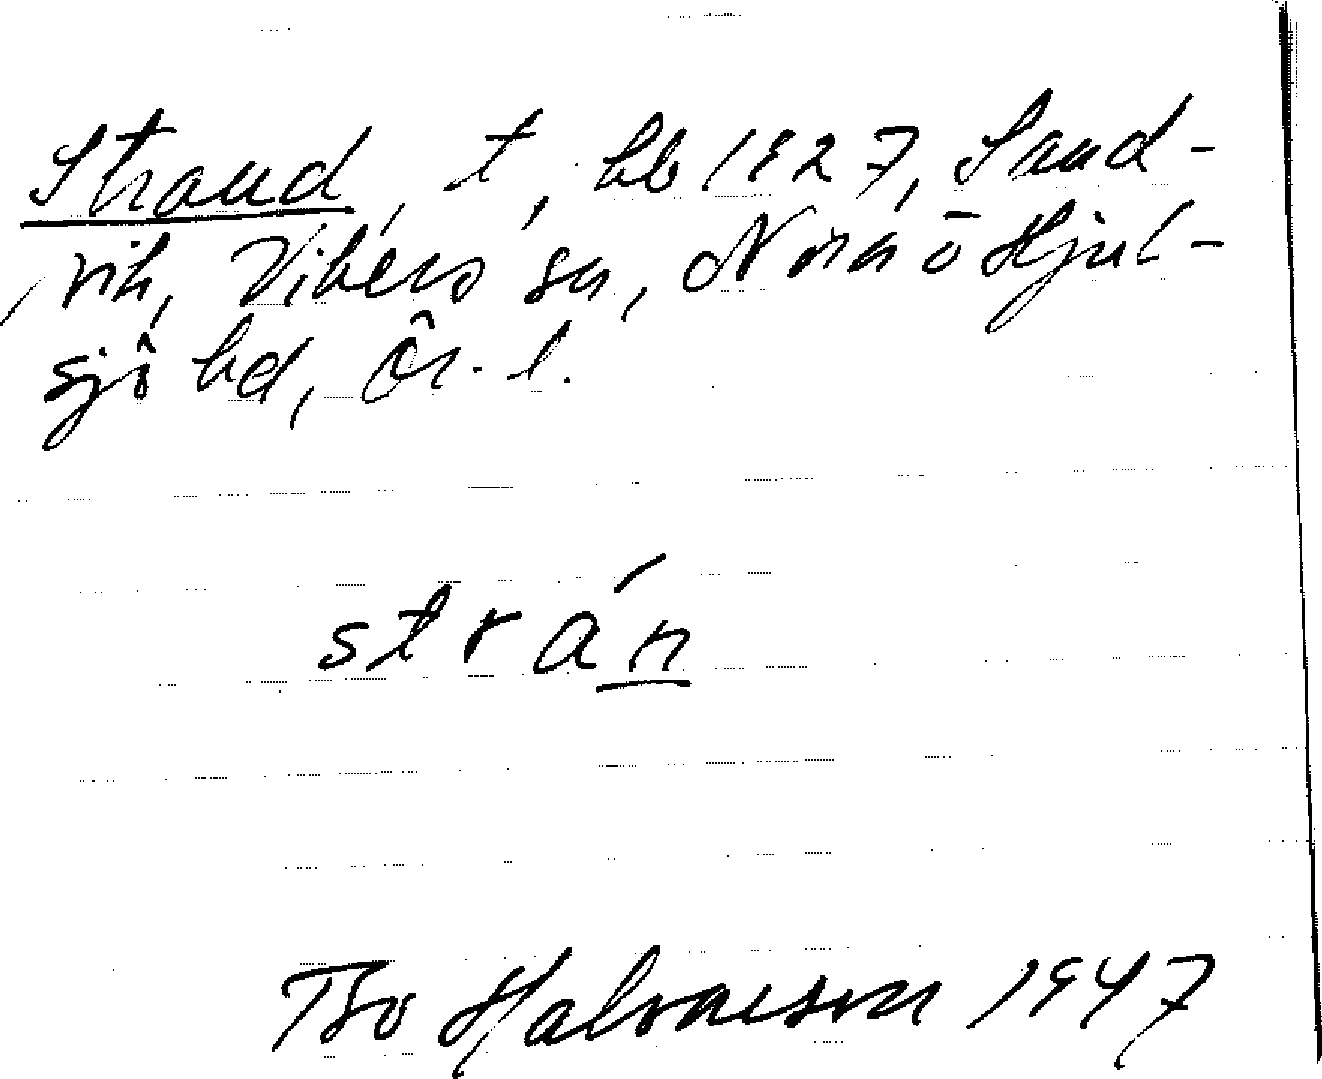 Strand, t, hb 1927, Sand-
vik, Vikers sn, Nora ō Hjul-
sjö bd, Ör. l.
strán
Tbo Halvarsson 1947